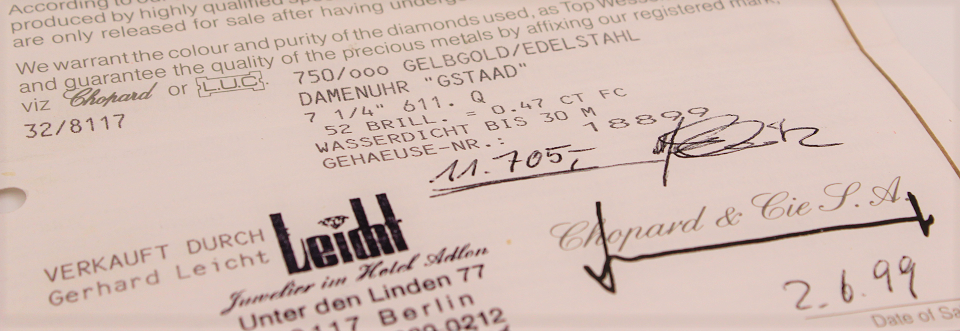 According to our
produced by highly qualified
are only released for sale after having
We warrant the colour and purity of the diamonds used, as Top
and guarantee the quality of the precious metals by affixing our registered mark,
viz Chopard or L.U.C.
32/8117
750/ooo GELBGOLD/EDELSTAHL
DAMENUHR "GSTAAD"
7 1/4" 611. Q
52 BRILL. = 0.47 CT FC
WASSERDICHT BIS 30 M
GEHAEUSE-NR.: 18899
11.705,-
VERKAUFT DURCH
Gerhard Leicht
Leicht
Juwelier im Hotel Adlon
Unter den Linden 77
Berlin
0212
Chopard & Cie S.A.
2.6.99
Date of